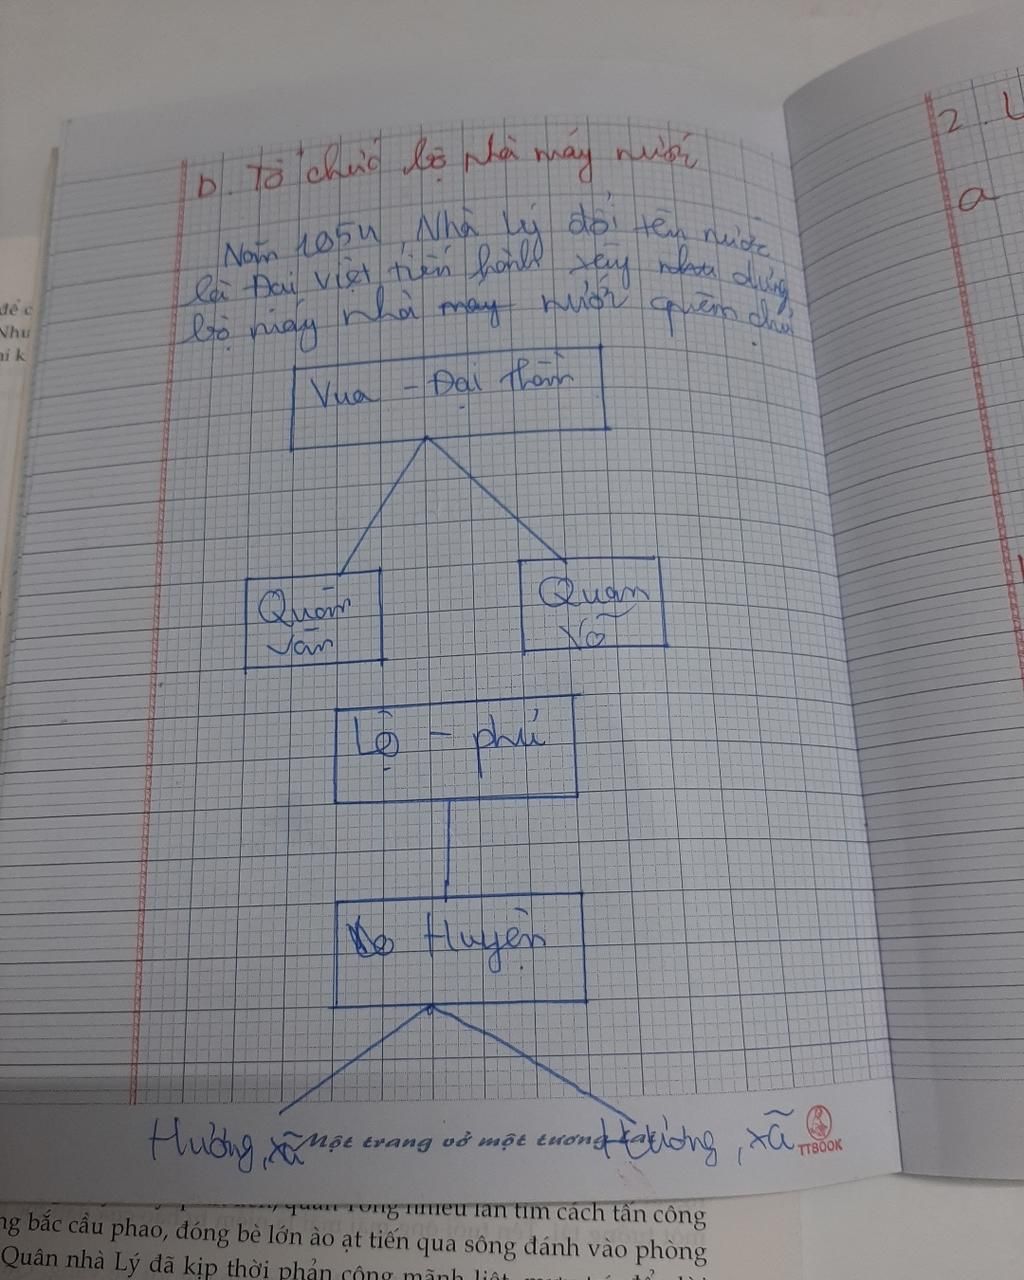 2. L
a
b. Tổ chức bộ nhà máy nước
Năm 1054, Nhà Lý đổi tên nước
là Đại Việt tiến hành xây dựng
bộ máy nhà may nước quân chủ
Vua - Đại thần
Quan
Văn
Quan
Võ
Lộ - phủ
Huyện
Hương, xã
Hương, xã
Một trang vở một tương lai
TTBOOK
để c
Như
ai k
quân Tống nhiều lần tìm cách tấn công
ng bắc cầu phao, đóng bè lớn ào ạt tiến qua sông đánh vào phòng
Quân nhà Lý đã kịp thời phản công mãnh liệt